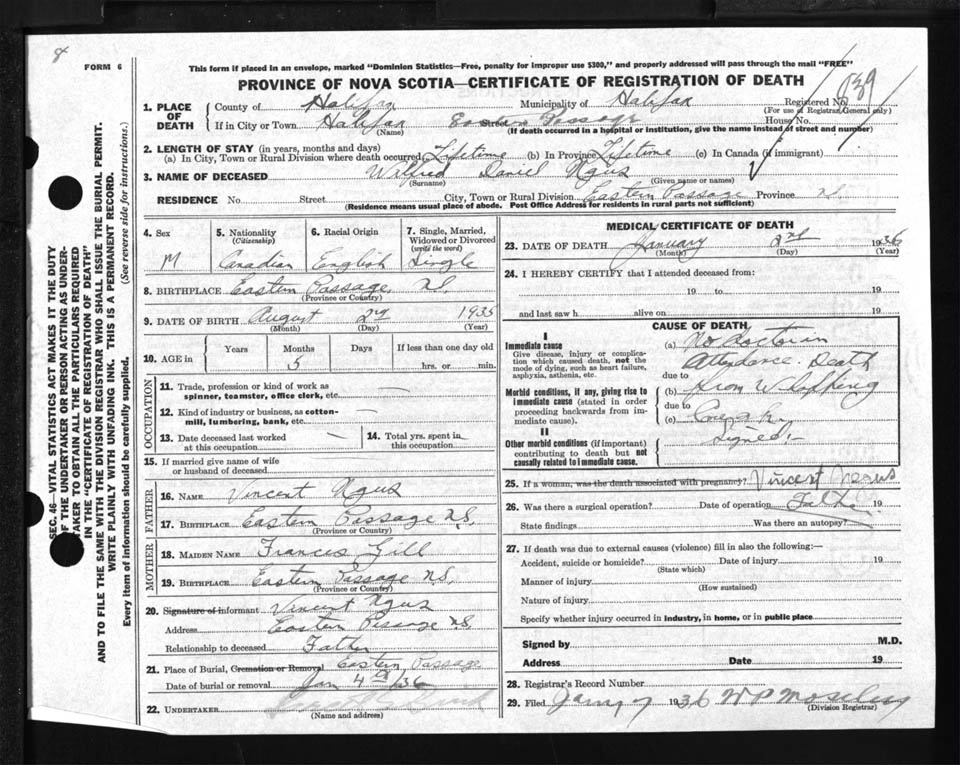 8
FORM 6
This form if placed in an envelope, marked "Dominion Statistics—Free, penalty for improper use $300," and properly addressed will pass through the mail "FREE"
PROVINCE OF NOVA SCOTIA—CERTIFICATE OF REGISTRATION OF DEATH
SEC. 46—VITAL STATISTICS ACT MAKES IT THE DUTY
OF THE UNDERTAKER OR PERSON ACTING AS UNDER-
TAKER TO OBTAIN ALL THE PARTICULARS REQUIRED
IN THE "CERTIFICATE OF REGISTRATION OF DEATH"
AND TO FILE THE SAME WITH THE DIVISION REGISTRAR WHO SHALL ISSUE THE BURIAL PERMIT.
WRITE PLAINLY WITH UNFADING INK. THIS IS A PERMANENT RECORD.
Every item of information should be carefully supplied. (See reverse side for instructions.)
1. PLACE OF DEATH County of Halifax Municipality of Halifax Registered No. 839
(For use of Registrar General only)
If in City or Town Halifax Eastern Passage Street House No.
(Name) (If death occurred in a hospital or institution, give the name instead of street and number)
2. LENGTH OF STAY (in years, months and days)
(a) In City, Town or Rural Division where death occurred Lifetime (b) In Province Lifetime (c) In Canada (if immigrant)
3. NAME OF DECEASED Wilfred Daniel Negus
(Surname) (Given name or names)
RESIDENCE No. Street City, Town or Rural Division Eastern Passage Province N.S.
(Residence means usual place of abode. Post Office Address for residents in rural parts not sufficient)
4. Sex
M
5. Nationality
(Citizenship)
Canadian
6. Racial Origin
English
7. Single, Married,
Widowed or Divorced
(write the word)
Single
8. BIRTHPLACE Eastern Passage, N.S.
(Province or Country)
9. DATE OF BIRTH August 2nd 1935
(Month) (Day) (Year)
10. AGE in Years Months Days If less than one day old
5 hrs. or min.
OCCUPATION
11. Trade, profession or kind of work as
spinner, teamster, office clerk, etc.
12. Kind of industry or business, as cotton-
mill, lumbering, bank, etc.
13. Date deceased last worked
at this occupation
14. Total yrs. spent in
this occupation
15. If married give name of wife
or husband of deceased
FATHER
16. NAME Vincent Negus
17. BIRTHPLACE Eastern Passage N.S.
(Province or Country)
MOTHER
18. MAIDEN NAME Frances Gill
19. BIRTHPLACE Eastern Passage N.S.
(Province or Country)
20. Signature of informant Vincent Negus
Address Eastern Passage N.S.
Relationship to deceased Father
21. Place of Burial, Cremation or Removal Eastern Passage
Date of burial or removal Jan 4th/36
22. UNDERTAKER
(Name and address)
MEDICAL CERTIFICATE OF DEATH
23. DATE OF DEATH January 2nd 1936
(Month) (Day) (Year)
24. I HEREBY CERTIFY that I attended deceased from:
19 to 19
and last saw h alive on 19
CAUSE OF DEATH
I
Immediate cause
Give disease, injury or complica-
tion which caused death, not the
mode of dying, such as heart failure,
asphyxia, asthenia, etc.
Morbid conditions, if any, giving rise to
immediate cause (stated in order
proceeding backwards from im-
mediate cause).
II
Other morbid conditions (if important)
contributing to death but not
causally related to immediate cause.
(a) No doctor in
attendance. Death
due to
(b) from Whopping
due to
(c) Cough
Signed:-
25. If a woman, was the death associated with pregnancy? Vincent Negus
26. Was there a surgical operation? Date of operation Father
State findings Was there an autopsy?
27. If death was due to external causes (violence) fill in also the following:—
Accident, suicide or homicide? Date of injury 19
(State which)
Manner of injury
(How sustained)
Nature of injury
Specify whether injury occurred in industry, in home, or in public place
Signed by M.D.
Address Date 19
28. Registrar's Record Number
29. Filed Jany 7 1936 W P Moseley
(Division Registrar)